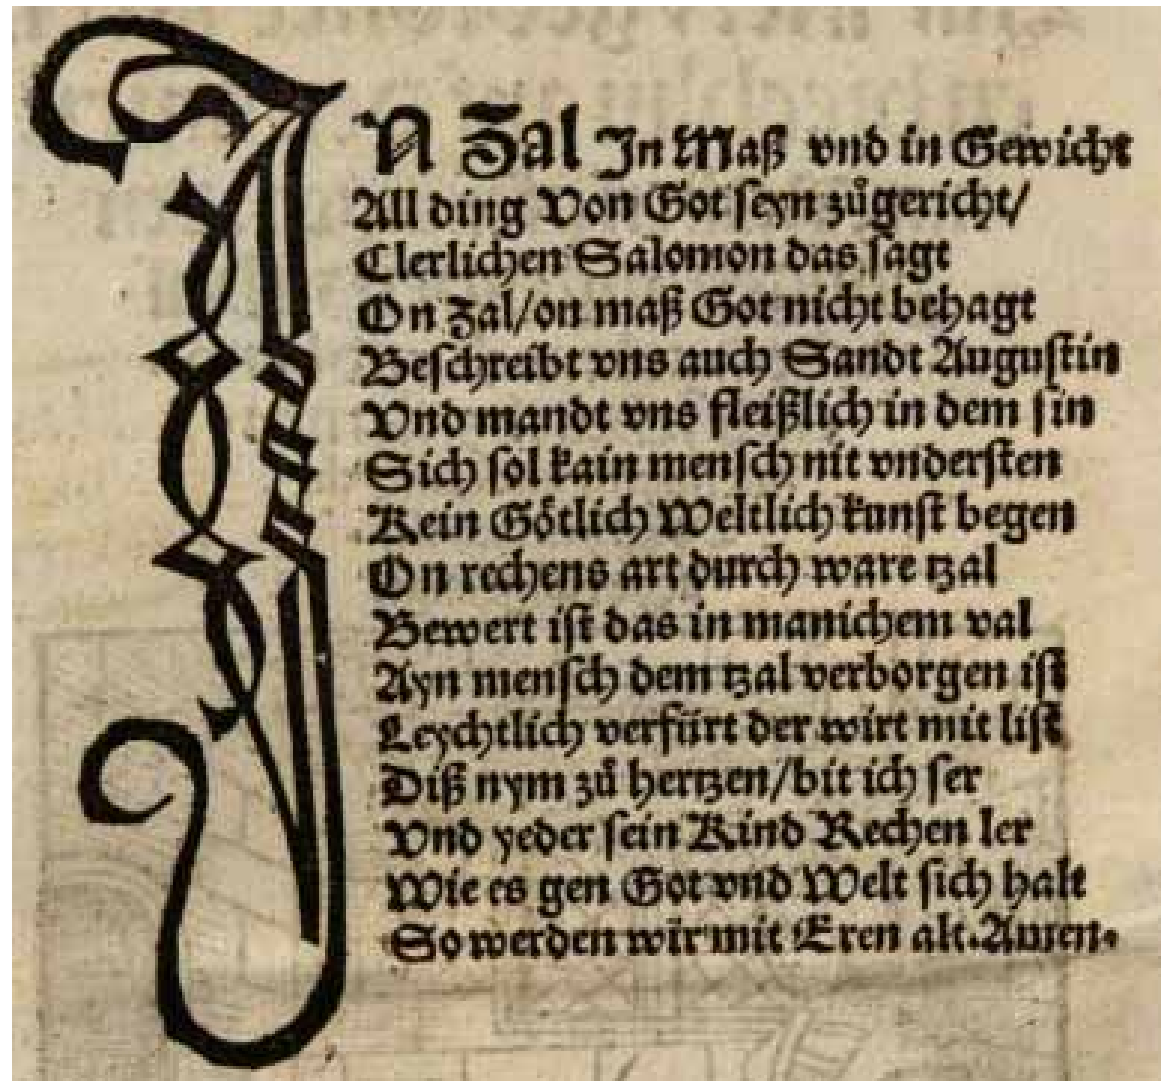 IN Zal In Maß vnd in Gewicht
All ding Von Got seyn zůgericht/
Clerlichen Salomon das sagt
On zal/on maß Got nicht behagt
Beschreibt vns auch Sandt Augustin
Vnd mandt vns fleißlich in dem sin
Sich sol kain mensch nit vndersten
Kein Gȯtlich Weltlich kunst begen
On rechens art durch ware tzal
Bewert ist das in manichem val
Ayn mensch dem tzal verborgen ist
Leychtlich verfürt der wirt mit list
Diß nym zů hertzen/bit ich ser
Vnd yeder sein Kind Rechen ler
Wie es gen Got vnd Welt sich halt
So werden wir mit Eren alt.Amen.